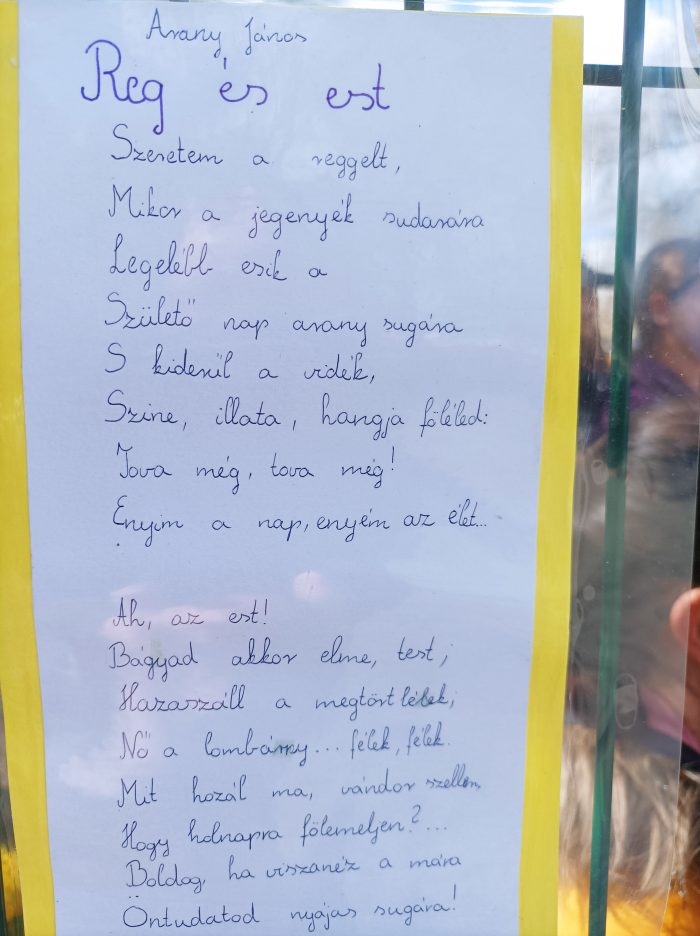 Arany János
Reg és est
Szeretem a reggelt,
Mikor a jegenyék sudarára
Legelébb esik a
Születő nap arany sugára
S kiderül a vidék,
Szine, illata, hangja föléled:
Tova még, tova még!
Enyim a nap, enyém az élet...
Ah, az est!
Bágyad akkor elme, test;
Hazaszáll a megtört lélek;
Nő a lombárny... félek, félek.
Mit hozál ma, vándor szellem,
Hogy holnapra fölemeljen?...
Boldog, ha viszanéz a mára
Öntudatod nyájas sugára!